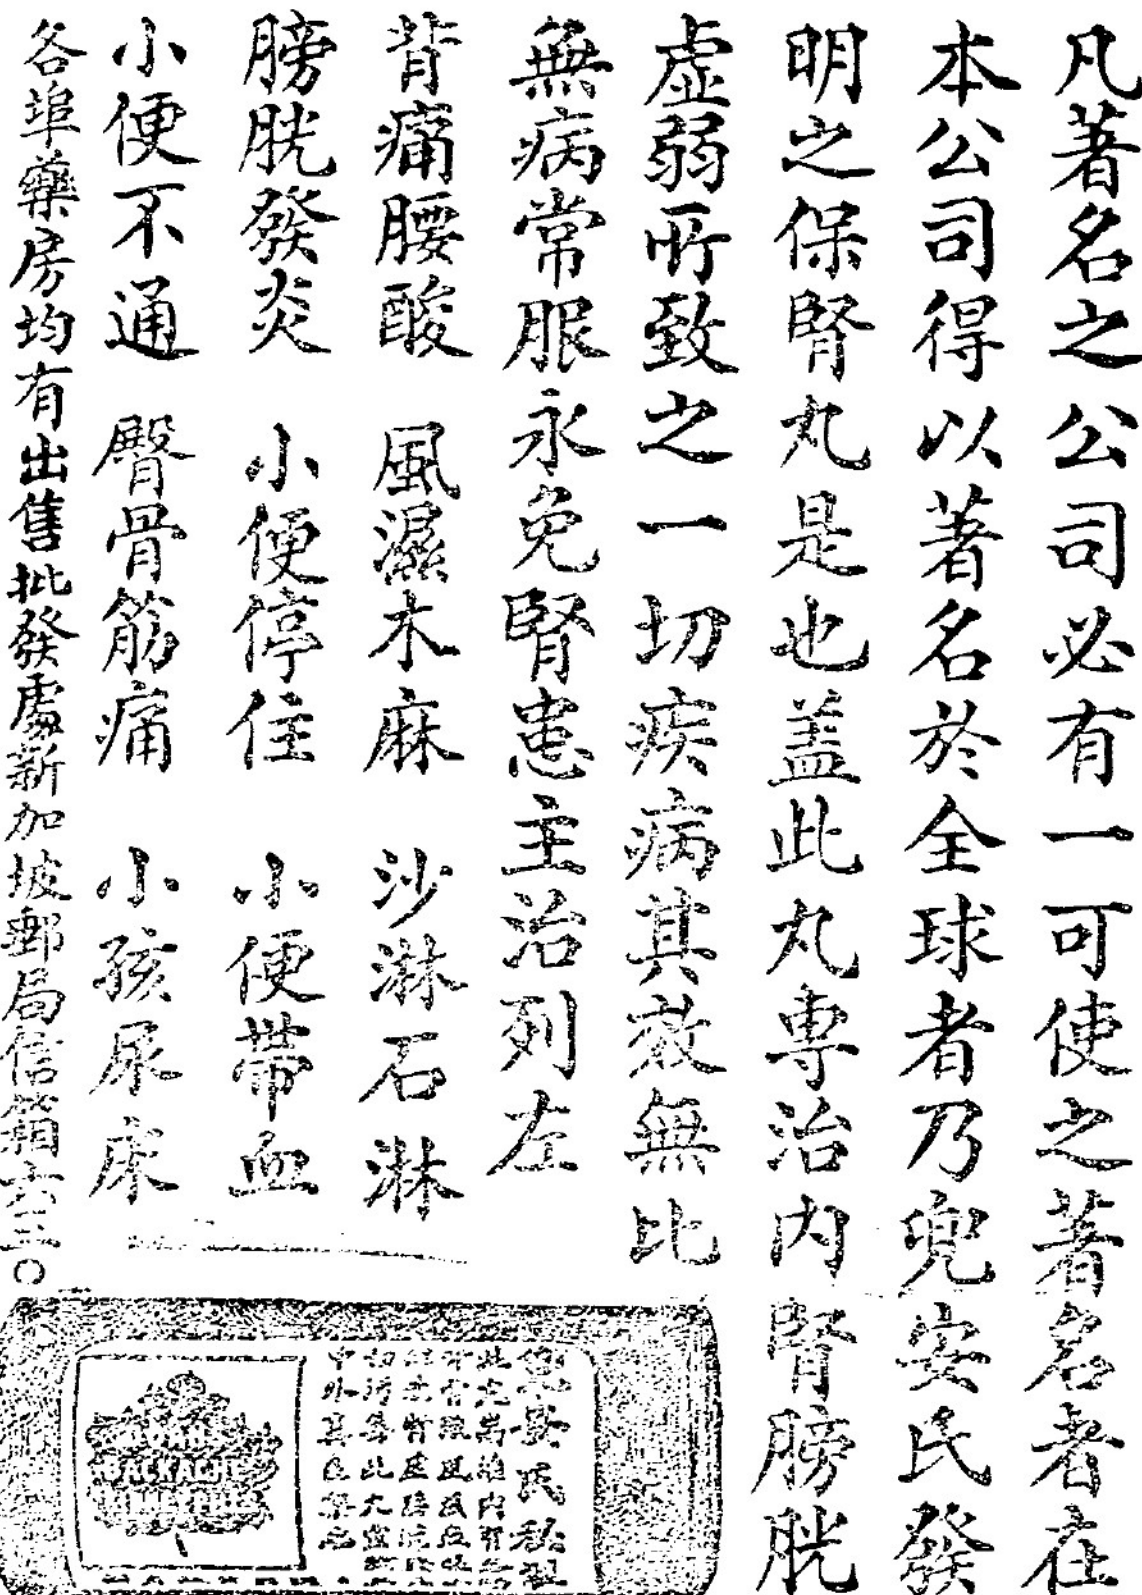 凡著名之公司必有一可使之著名者在
本公司得以著名於全球者乃兜安氏發
明之保腎丸是也蓋此丸專治内腎膀胱
虛弱所致之一切疾病其效無比
無病常服永免腎患主治列左
背痛腰酸　風濕木麻　沙淋石淋
膀胱發炎　小便停住　小便帶血
小便不通　臀骨筋痛　小孩尿床
各埠藥房均有出售批發處新加坡郵局信箱六三〇
BACKACHE